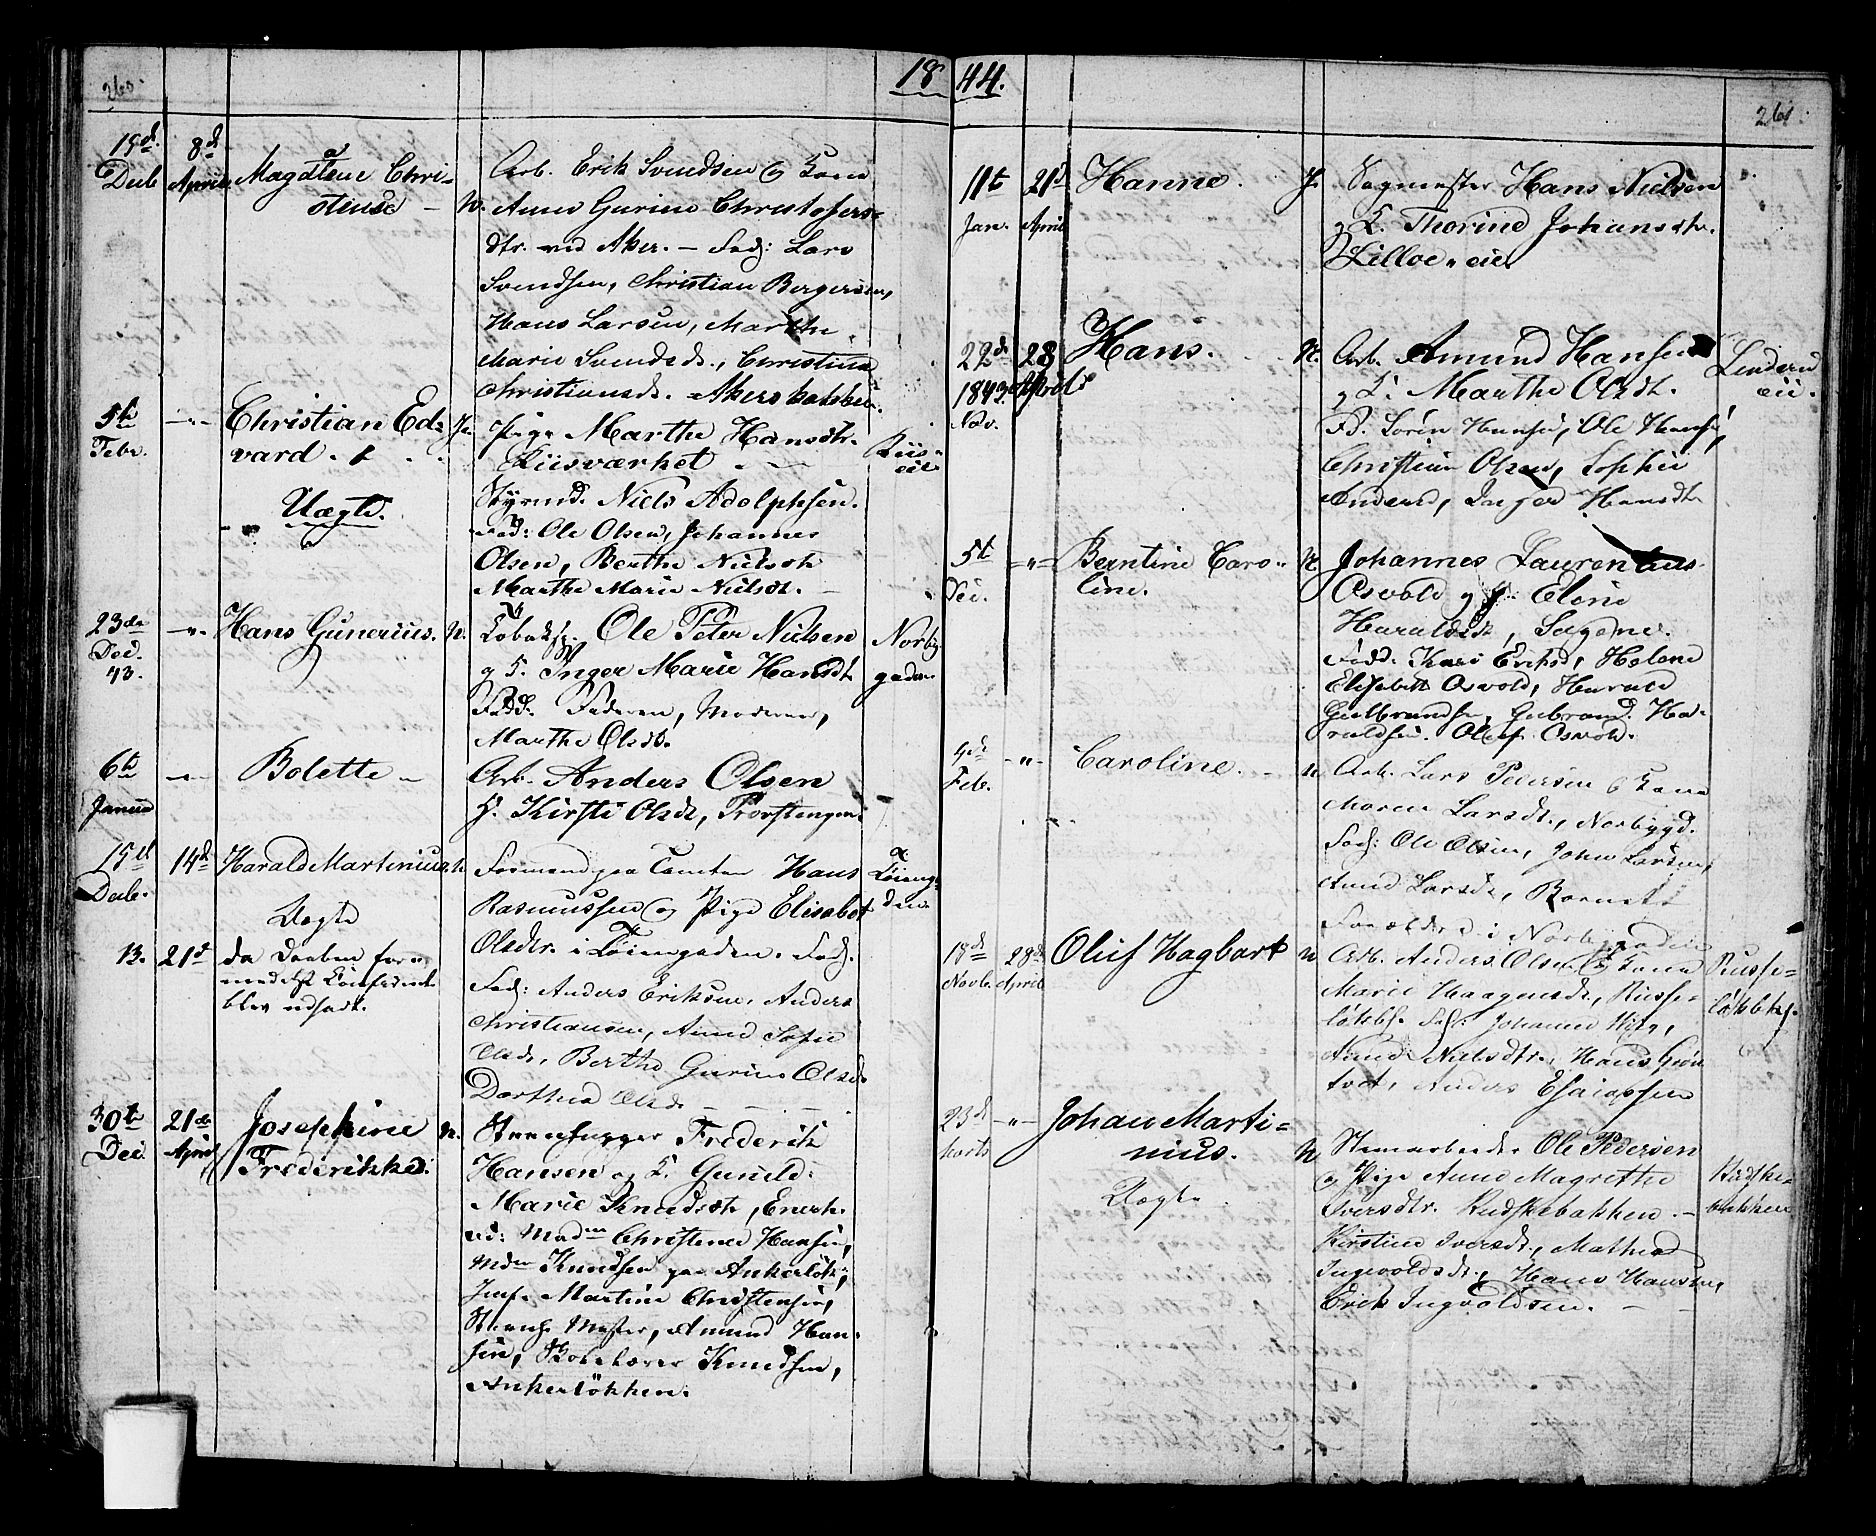 260.
18
19de 8de
Decb. April. Magdalene Chri-
stense N.
Arb. Erik Svendsen og Kone
Anne Gurine Christofers-
dtr. ved Aker. — Fad: Lars
Svendsen, Christian Bergersen,
Hans Larsen, Marthe
Marie Svendsd., Christine
Christiansd. Akersbakken.
5te Febr. —"— Christian Ed-
vard.
Uægte.
Pige Marthe Hansdtr.
Riisværket
Styrmd. Niels Adolphsen.
Fad: Ole Olsen, Johannes
Olsen, Berthe Nielsdt.
Marthe Marie Nielsdt.
Riis-
eie
23de
Dec.
43.
—"— Hans Gunerius. N.
Tobaksp. Ole Peter Nielsen
og K. Inger Marie Hansdt.
Fadd. Faderen, Moderen,
Marthe Olsdt.
Norby
gaden
6te
Januar
—"— Bolette —
Arb. Anders Olsen
H. Kirsti Olsdt, Torvstengen.
15de
Decb.
14de Harald Martinius
Uægte
Formand paa Tomten Hans
Rasmussen og Pige Elisabet
Olsdtr. i Tøiengaden. Fad.
Fad: Anders Eriksen, Anders
Christiansen, Anne Sofie
Olsd., Berthe Gurine Olsd.
Dorthea Olsd.
Tøieng-
den
13. 21de da Daaben for-
blev udsadt.
30te
Dec.
21de
April
Josephine
Frederikke. N.
Steenhugger Frederik
Hansen og K. Gunild
Marie Knudsdt, Enerh.
Fd: Madm Christence Hansen,
Mdm Knudsen paa Ankerløk:,
Jmf. Martine Christensen,
Steenh. Mester, Amund Han-
sen, Knudsen,
Ankerløkken.
44.
261.
11te
Jan.
21de
April
Hanne.
Sagmester Hans Nielsen
og K. Thorine Johansdtr.
Lilloe-eie
22de
1843
Nov.
28
April
Hans. N.
Arb. Amund Hansen
og K. Marthe Olsdt.
Fd. Søren Hansen, Ole Hansen,
Christian Olsen, Sophie
Andersd, Inger Hansdt.
Linderud
eie.
5te
Dec.
—"— Berntine Caro-
line. N
Johannes Laurentius
Osvold og K. Elene
Haraldsdt, Sagene.
Fadd. Kari Eriksd, Helene
Elisabeth Osvold, Harald
Gulbrandsen, Gubrand Ha-
raldsen. Oluf Osvold.
4de
Feb.
—"— Caroline. N
Arb. Lars Pedersen og Kone
Maren Larsdt., Norbygd.
Fad: Ole Olsen, John Larsen,
Anne Larsdt, Barnets
Forældre i Norbygaden
18de
Novb.
28de
April
Oluf Hagbart N
Arb. Anders Olsen og Kone
Marie Haagensdt, Russe-
løkbk. Fad: Johanne
Anne Nielsdtr., Hans Grøn-
tvet, Anders Esaiassen
Russe-
løkbk.
23de
Marts
—"— Johan Marti-
nius. N
Uægte.
Steenarbeider Ole Pedersen
og Pige Anne Magrethe
Iversdtr. Rudskebakken. —
Kirstine Iversdt., Mathea
Ingvoldsdt., Hans Hansen,
Erik Ingvoldsen.
Rudske-
bakken